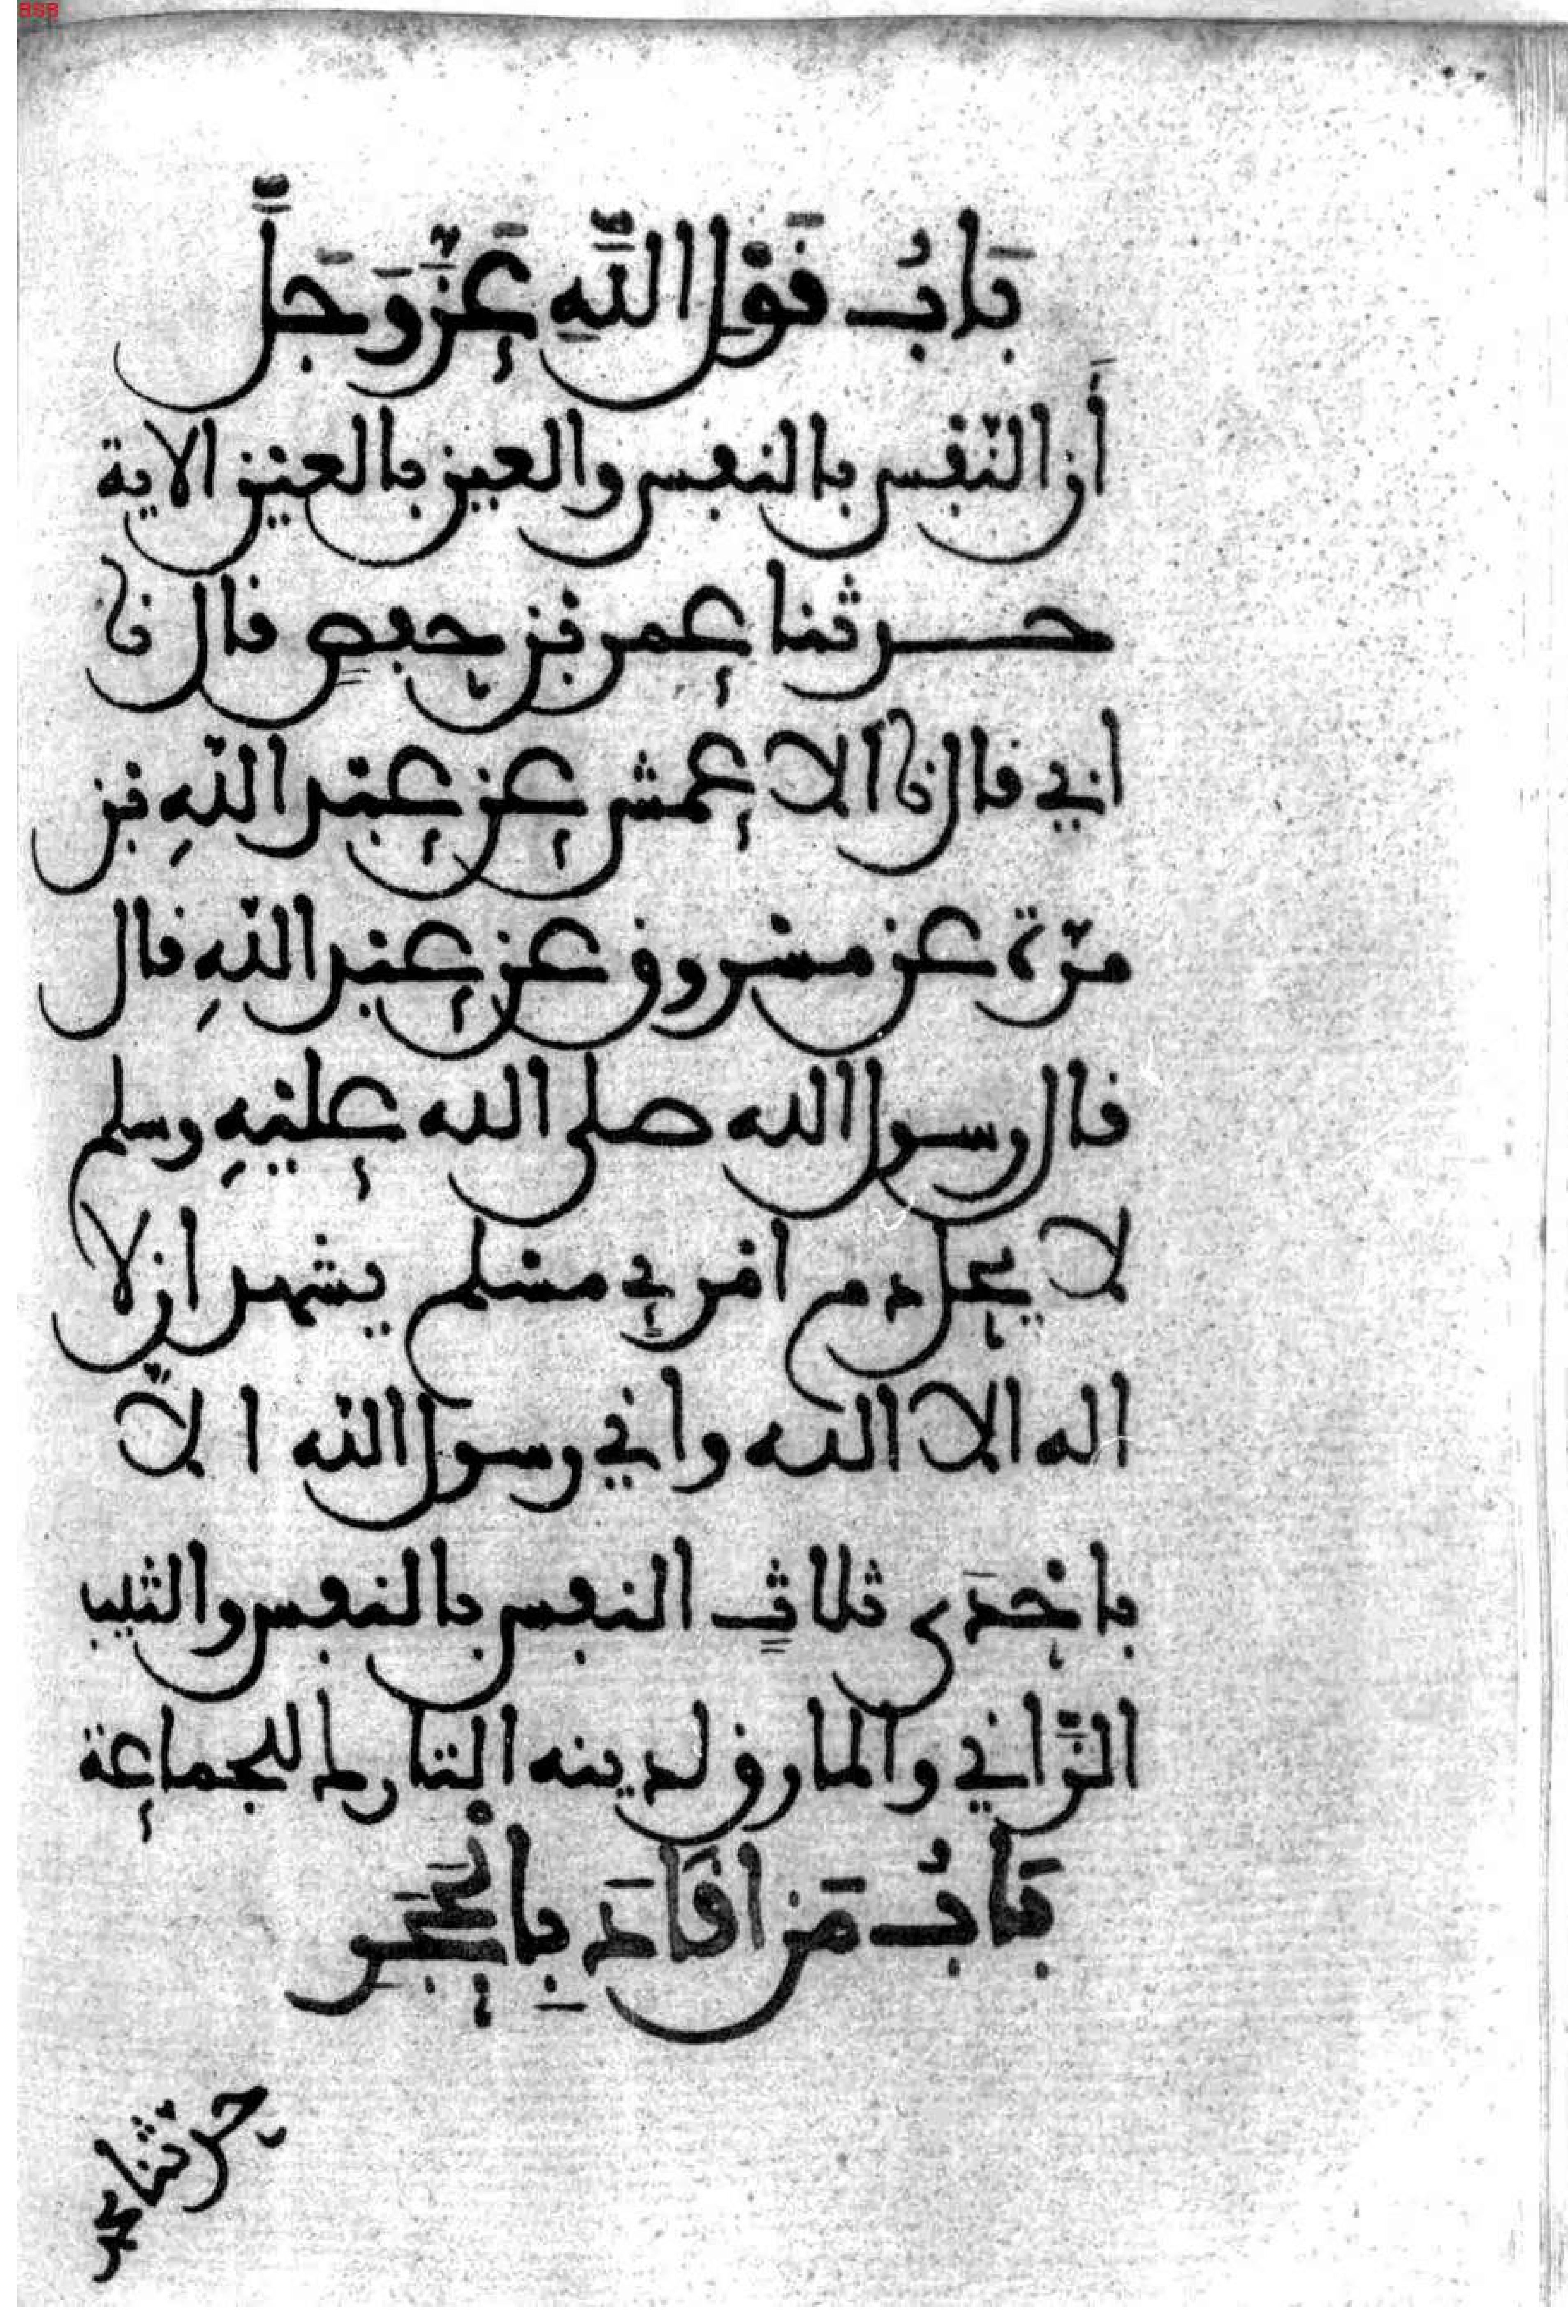 BSB
بَابُ قَوْلِ اللَّهِ عَزَّ وَجَلَّ
أَن النّفس بالنفس والعين بالعين الاية
حدثنا عمر بن حفص قال نا
ابي قال نا الاعمش عن عبد اللهِ بن
مرّة عن مسروق عن عبد اللهِ قال
قال رسول الله صلى الله عليهِ وسلم
لا يحل دم امرئٍ مسلم يشهد ان لا
اله الا الله واني رسول الله الا
باحْدَى ثلاثٍ النفس بالنفس والثيب
الزَّاني والمارق لدينه التارك للجماعة
بَابُ مَن اقَادَ بِالْحَجَر
حدثنا محمد